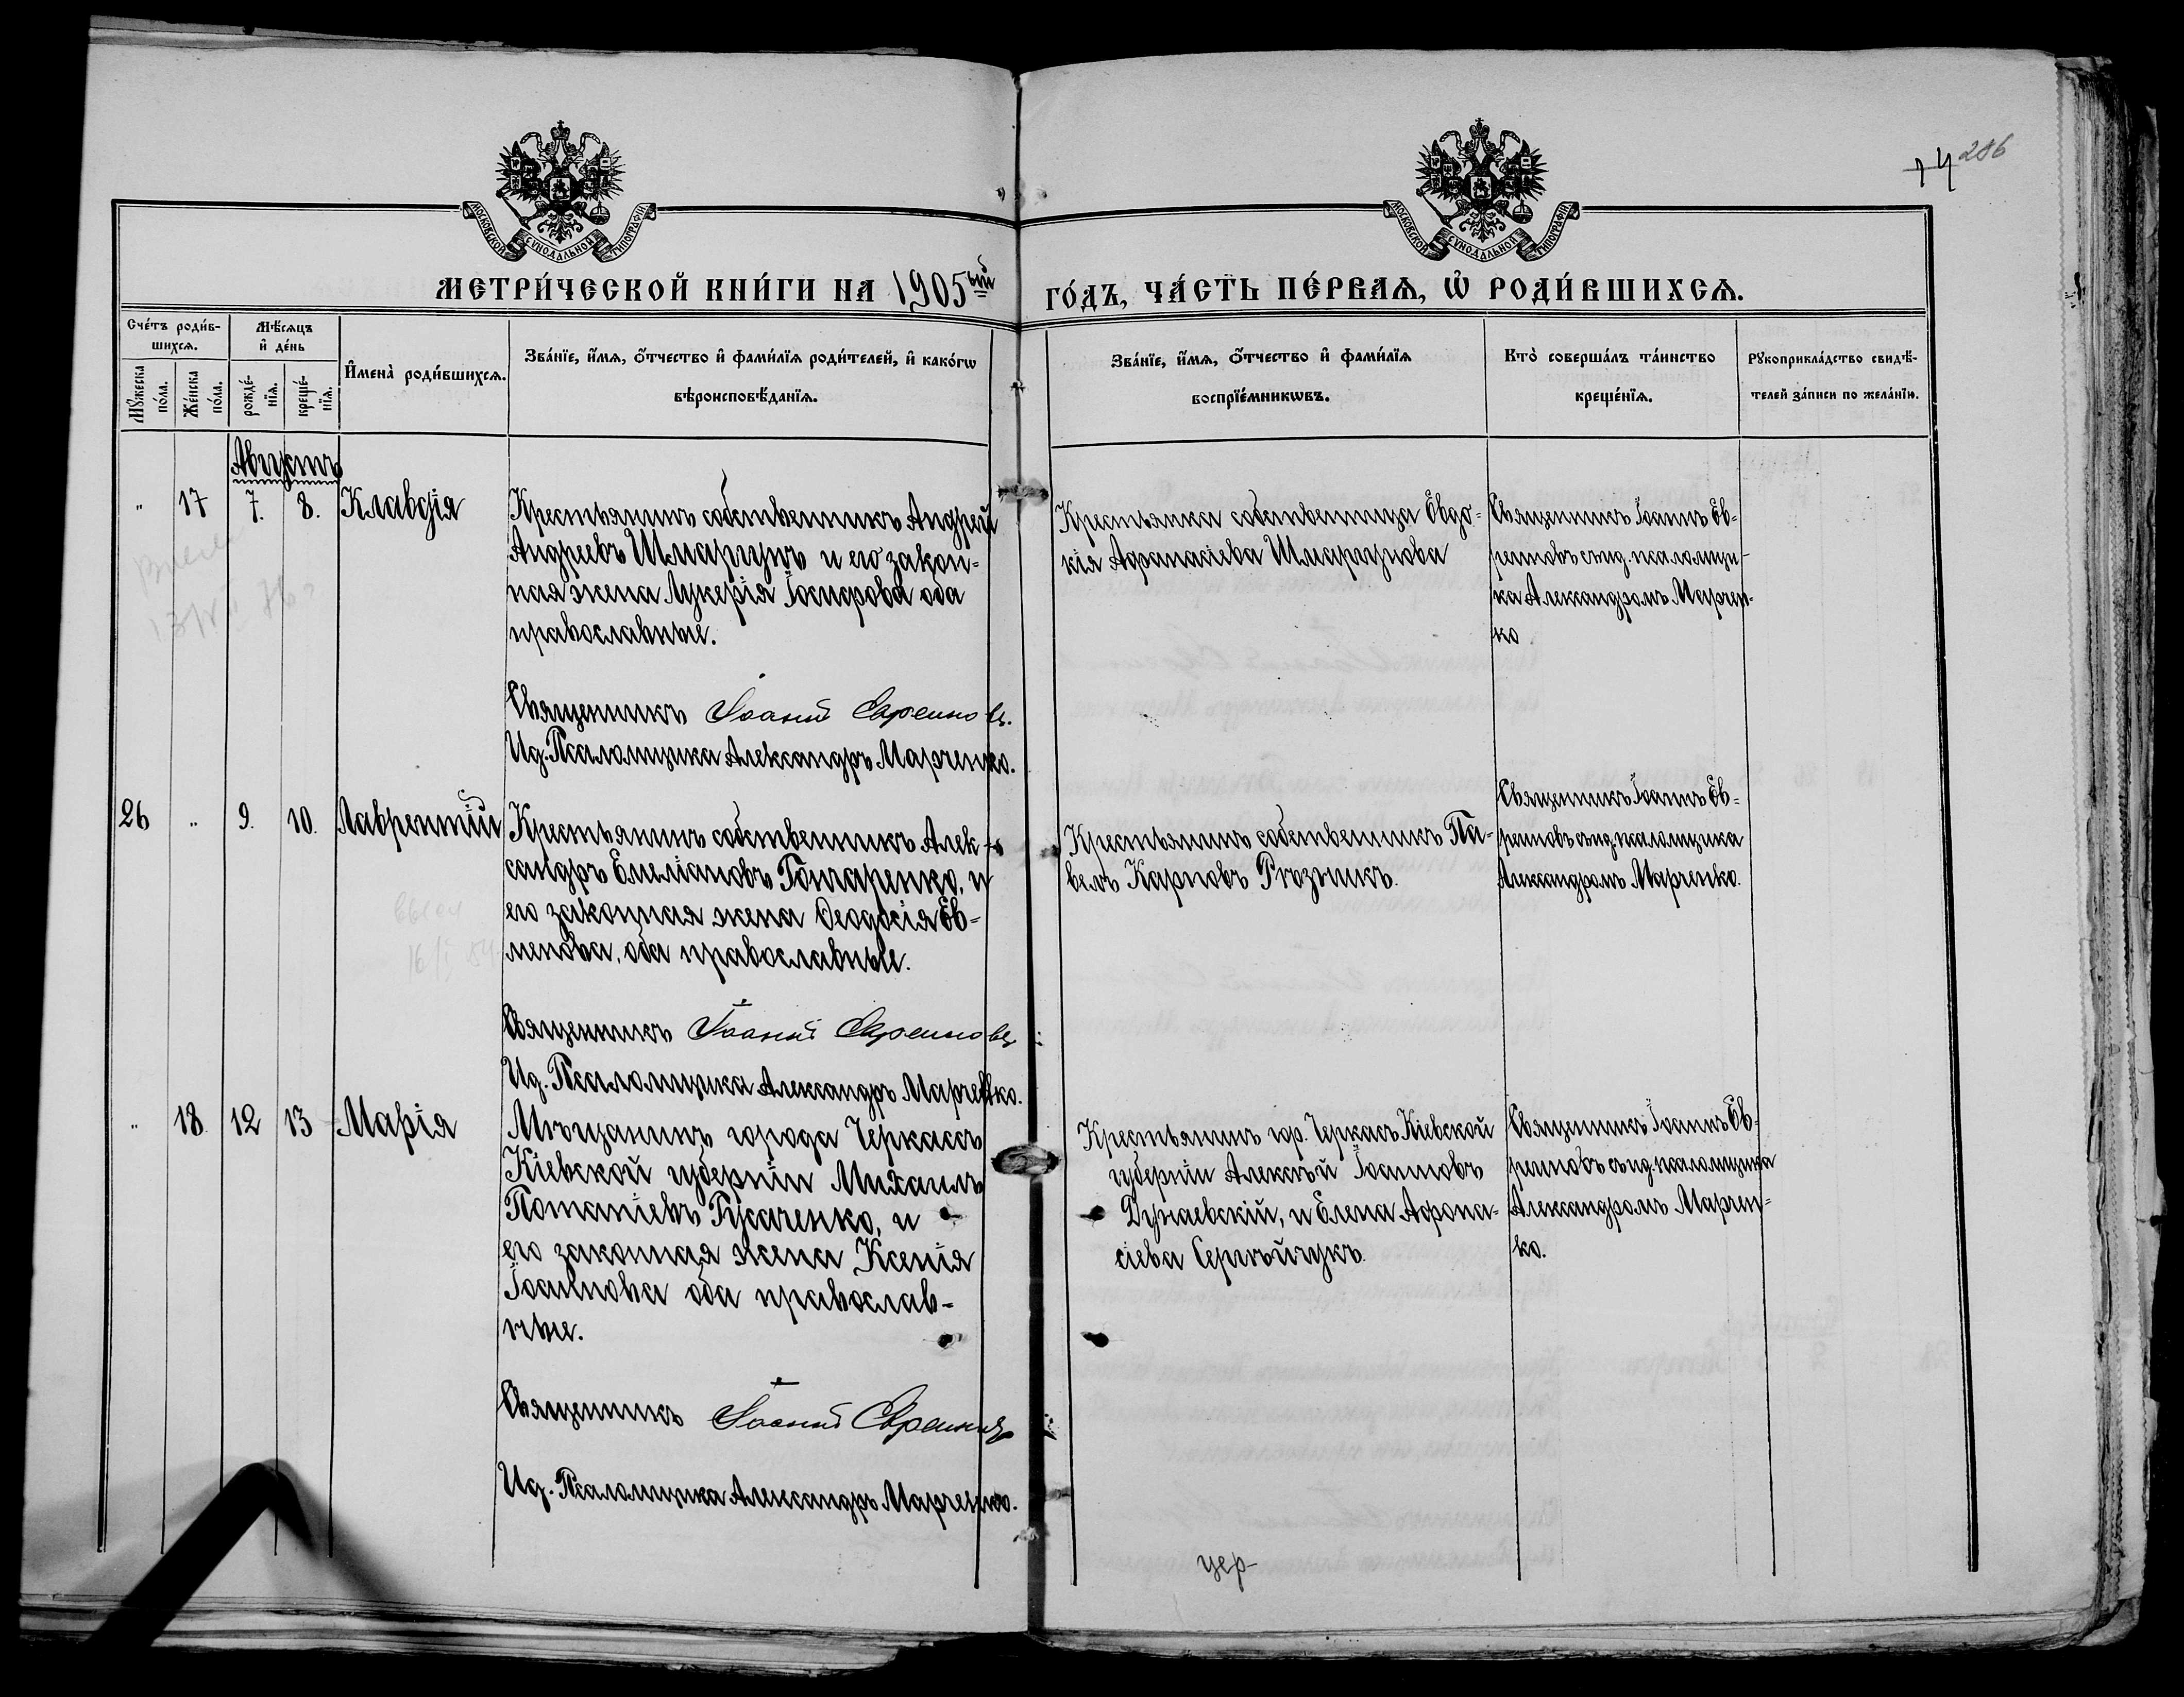 МОСКОВСКОЙ СУНОДАЛЬНОЙ ТИПОГРАФІИ
МОСКОВСКОЙ СУНОДАЛЬНОЙ ТИПОГРАФІИ
14 286
МЕТРИ́ЧЕСКОЙ КНИ́ГИ НА 1905ый
ГО́ДЪ, ЧА́СТЬ ПЕ́РВАѦ, Ѡ҆ РОДИ́ВШИХСѦ.
Сче́тъ роди́в-
шихсѧ.
Мѣ́сѧцъ
и҆ де́нь
Мꙋ́жеска по́ла.
Же́нска по́ла.
рожде́-нїѧ.
креще́-нїѧ.
И҆мена̀ роди́вшихсѧ.
Зва́нїе, и҆́мѧ, ѻ҆́тчество и҆ фами́лїѧ роди́телей, и҆ како́гѡ
вѣроисповѣ́данїѧ.
Зва́нїе, и҆́мѧ, ѻ҆́тчество и҆ фами́лїѧ
воспрїе́мникѡвъ.
Кто̀ соверша́лъ та́инство
креще́нїѧ.
Рꙋкоприкла́дство свидѣ́-
телей за́писи по жела́нїю.
Августъ
" 17 7. 8. Клавдія
Крестьянинъ собственникъ Андрей
Андреевъ Шмаргунъ и его закон=
ная жена Лукерія Іосифова оба
православные.
Священникъ Іоаннъ Евреиновъ.
Ид. Псаломщика Александръ Марченко.
Крестьянка собственница Евдо=
кія Афанасіева Шмаргунова
Священникъ Іоаннъ Ев=
реиновъ съ ид. псаломщи-
ка Александромъ Марчен-
ко
26 " 9. 10. Лаврентій
Крестьянинъ собственникъ Алек-
сандръ Емеліановъ Гончаренко, и
его законная жена Ѳеодосія Ев=
менова, оба православные.
Священникъ Іоаннъ Евреиновъ
Ид. Псаломщика Александръ Марченко.
Крестьянинъ собственникъ Па-
велъ Карповъ Рѣзникъ.
Священникъ Іоаннъ Ев=
реиновъ съ ид. псаломщика
Александромъ Марченко.
" 18. 12 13 Марія
Мѣщанинъ города Черкассъ
Кіевской губерніи Михаилъ
Потапіевъ Гусаченко, и
его законная жена Ксенія
Іоаннова оба православ-
ные.
Священникъ Іоаннъ Евреиновъ
Ид. Псаломщика Александръ Марченко.
Крестьянинъ гор. Черкасъ Кіевской
губерніи Алексѣй Іоанновъ
Дунаевскій, и Елена Афона=
сіева Сергѣйчукъ.
Священникъ Іоаннъ Ев-
реиновъ съ ид. псаломщика
Александромъ Марчен=
ко.
цер-